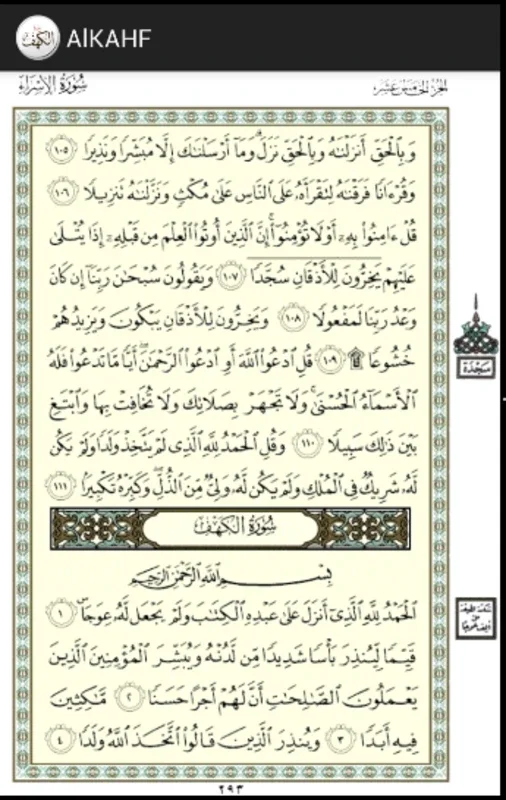 الكهف
AlKAHF
سُورَةُ الإِسْرَاءِ
الجزء الخامس عشر
وَبِالْحَقِّ أَنزَلْنَٰهُ وَبِالْحَقِّ نَزَلَ ۗ وَمَآ أَرْسَلْنَٰكَ إِلَّا مُبَشِّرًا وَنَذِيرًا ١٠٥
وَقُرْءَانًا فَرَقْنَٰهُ لِتَقْرَأَهُۥ عَلَى النَّاسِ عَلَىٰ مُكْثٍ وَنَزَّلْنَٰهُ تَنزِيلًا ١٠٦
قُلْ ءَامِنُوا۟ بِهِۦٓ أَوْ لَا تُؤْمِنُوٓا۟ ۚ إِنَّ الَّذِينَ أُوتُوا۟ الْعِلْمَ مِن قَبْلِهِۦٓ إِذَا يُتْلَىٰ
عَلَيْهِمْ يَخِرُّونَ لِلْأَذْقَانِ سُجَّدًا ١٠٧ وَيَقُولُونَ سُبْحَٰنَ رَبِّنَآ إِن كَانَ
وَعْدُ رَبِّنَا لَمَفْعُولًا ١٠٨ وَيَخِرُّونَ لِلْأَذْقَانِ يَبْكُونَ وَيَزِيدُهُمْ
خُشُوعًا ۩ ١٠٩ قُلِ ادْعُوا۟ اللَّهَ أَوِ ادْعُوا۟ الرَّحْمَٰنَ ۖ أَيًّا مَّا تَدْعُوا۟ فَلَهُ
الْأَسْمَآءُ الْحُسْنَىٰ ۚ وَلَا تَجْهَرْ بِصَلَاتِكَ وَلَا تُخَافِتْ بِهَا وَابْتَغِ
بَيْنَ ذَٰلِكَ سَبِيلًا ١١٠ وَقُلِ الْحَمْدُ لِلَّهِ الَّذِى لَمْ يَتَّخِذْ وَلَدًا وَلَمْ يَكُن
لَّهُۥ شَرِيكٌ فِى الْمُلْكِ وَلَمْ يَكُن لَّهُۥ وَلِىٌّ مِّنَ الذُّلِّ ۖ وَكَبِّرْهُ تَكْبِيرًۢا ١١١
سَجْدَة
سُورَةُ الكَهْفِ
بِسْمِ اللَّهِ الرَّحْمَٰنِ الرَّحِيمِ
الْحَمْدُ لِلَّهِ الَّذِىٓ أَنزَلَ عَلَىٰ عَبْدِهِ الْكِتَٰبَ وَلَمْ يَجْعَل لَّهُۥ عِوَجَا ۜ ١
قَيِّمًا لِّيُنذِرَ بَأْسًا شَدِيدًا مِّن لَّدُنْهُ وَيُبَشِّرَ الْمُؤْمِنِينَ الَّذِينَ
يَعْمَلُونَ الصَّٰلِحَٰتِ أَنَّ لَهُمْ أَجْرًا حَسَنًا ٢ مَّٰكِثِينَ
فِيهِ أَبَدًا ٣ وَيُنذِرَ الَّذِينَ قَالُوا۟ اتَّخَذَ اللَّهُ وَلَدًا ٤
سكتة لطيفة
على
ألف عوجا
٢٩٣